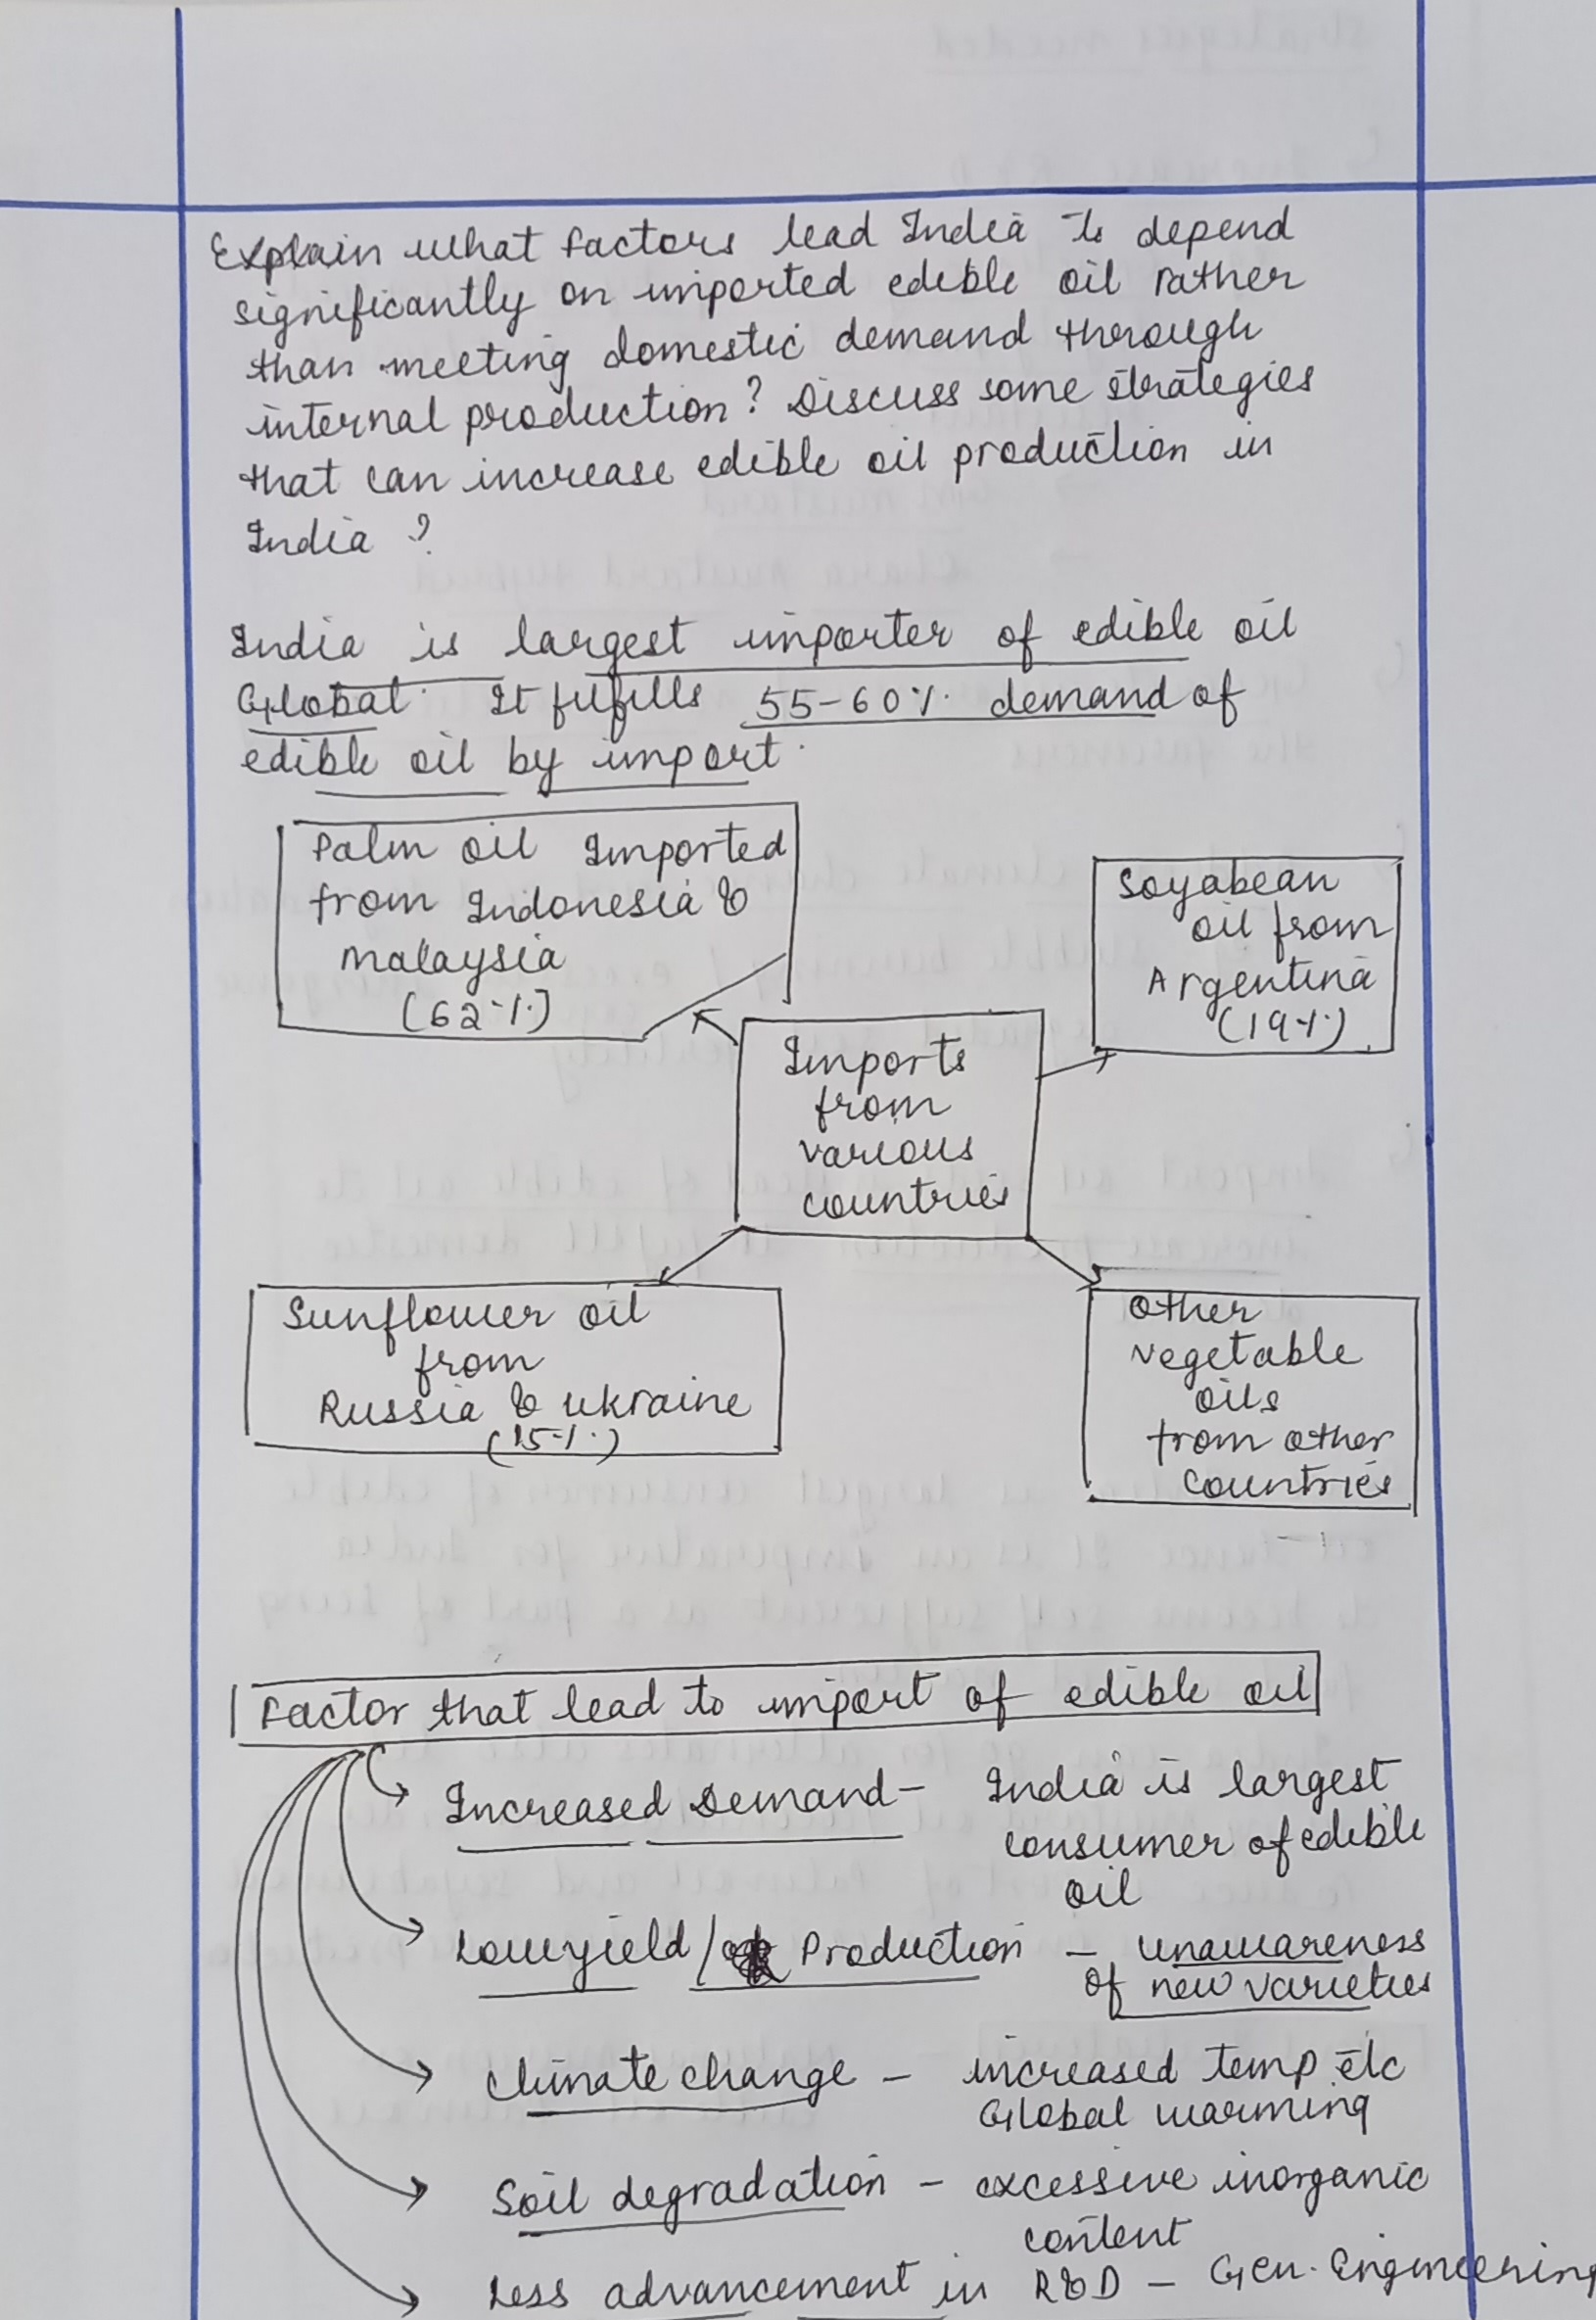 Explain what factors lead India to depend
significantly on imported edible oil rather
than meeting domestic demand through
internal production? Discuss some strategies
that can increase edible oil production in
India ?
India is largest importer of edible oil
Global. It fulfills 55-60% demand of
edible oil by import.
Palm oil Imported
from Indonesia &
malaysia
(62%)
Soyabean
oil from
Argentina
(19%)
Imports
from
various
countries
Sunflower oil
from
Russia & ukraine
(15%)
Other
vegetable
oils
from other
countries
Factor that lead to import of edible oil
Increased Demand - India is largest
consumer of edible
oil
Low yield / Production - unawareness
of new varieties
climate change - increased temp etc
Global warming
Soil degradation - excessive inorganic
content
Less advancement in R&D - Gen. Engineering